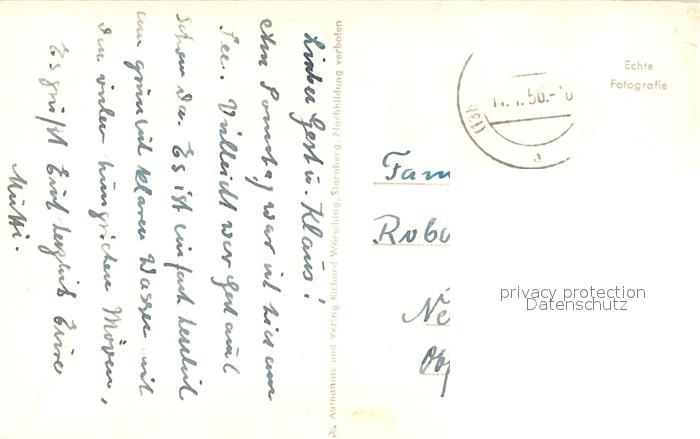 Lieber Gert u. Klaus!
Am Sonntag war ich hier am
See. Vielleicht war Gert auch
schon da. Es ist einfach herrlich
am grünlich klaren Wasser mit
den vielen hungrigen Möven,
Es grüßt Euch herzlich Eure
Mutti.
Aufnahme und Verlag Richard Wörsching, Starnberg. Nachbildung verboten
Echte
Fotografie
(13b)
56.-
a
Fam
Ne
privacy protection
Datenschutz